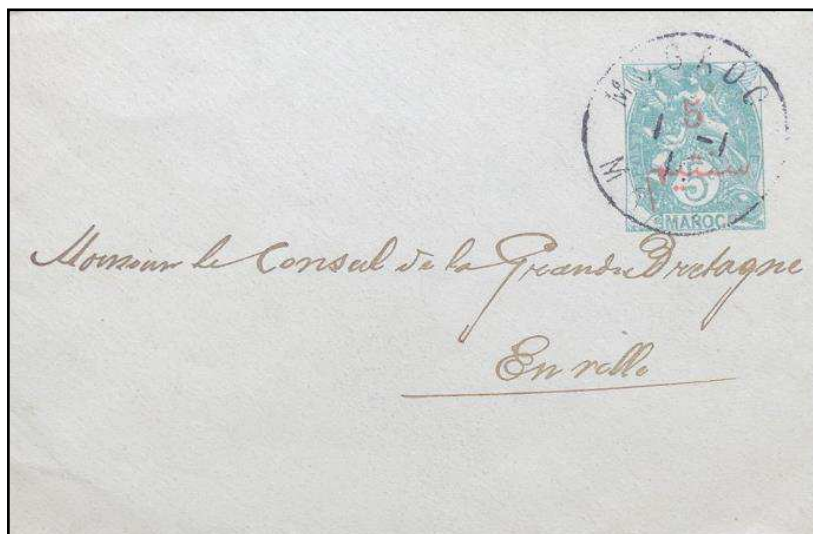 MAROC
5
1 -1
5
MAROC
Monsieur le Consul de la Grande Bretagne
En ville